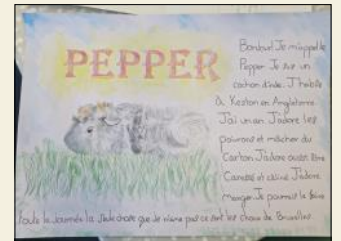 PEPPER
Bonjour! Je m'appelle
Pepper Je suis un
cochon d'inde. J'habite
à Keston en Angleterre
J'ai un an J'adore les
poivrons et mâcher du
Carton J'adore aussi être
Caressé et câliné J'adore
manger Je pourrais le faire
toute la Journée la Seule chose que Je n'aime pas ce sont les choux de Bruxelles